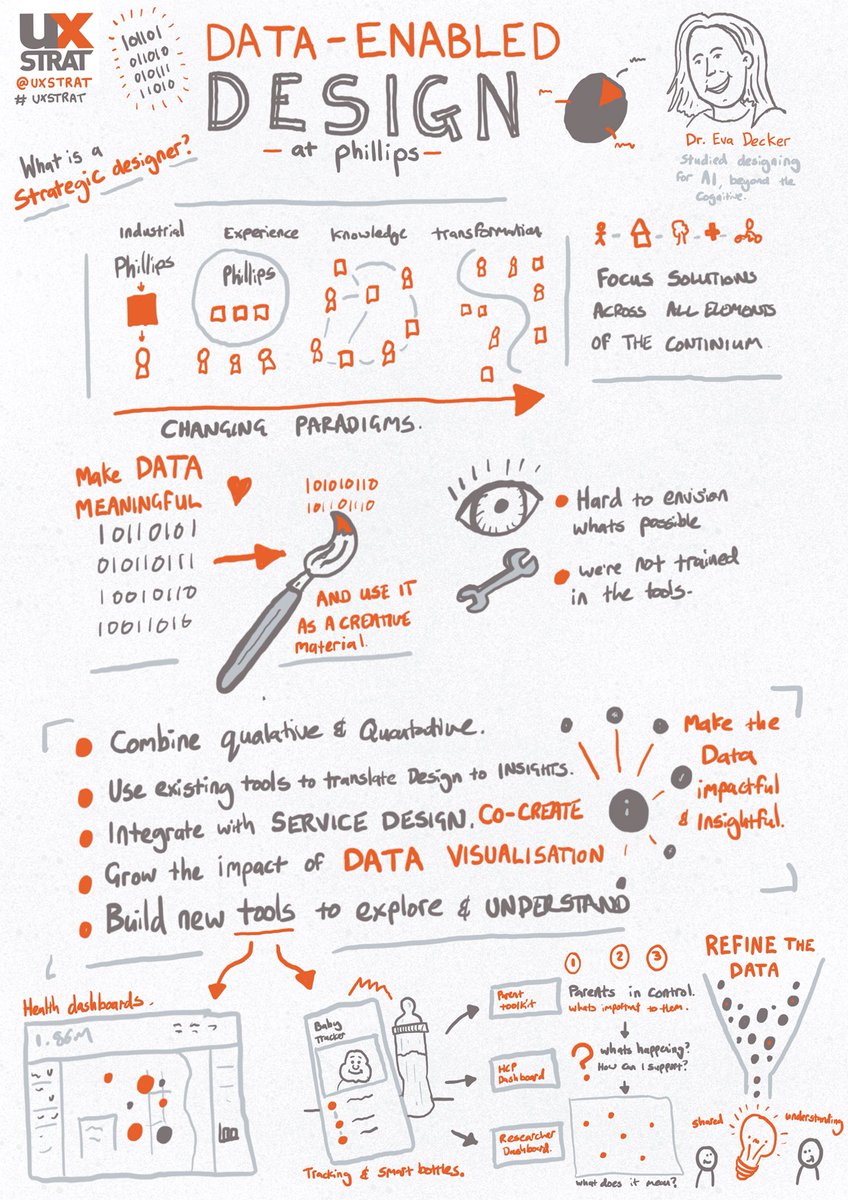 UX
STRAT
@UXSTRAT
# UXSTRAT
10110
01101
01011
11010
DATA-ENABLED
DESIGN
- at phillips -
Dr. Eva Decker
Studied designing
for AI, beyond the
Cognitive.
What is a
Strategic designer?
Industrial
Experience
Knowledge
transformation
Phillips
Phillips
FOCUS SOLUTIONS
ACROSS ALL ELEMENTS
OF THE CONTINIUM
CHANGING PARADIGMS.
Make DATA
MEANINGFUL
10110101
010110111
10010110
10011010
101010110
101101110
AND USE IT
AS A CREATIVE
Material.
Hard to envision
whats possible
we're not trained
in the tools.
Combine qualative & Quantative.
Use existing tools to translate Design to INSIGHTS.
Integrate with SERVICE DESIGN. CO-CREATE
Grow the impact of DATA VISUALISATION
Build new tools to explore & UNDERSTAND
Make the
Data
impactful
& Insightful.
Health dashboards.
1.86M
Baby
Tracker
Tracking & smart bottles.
Parent
toolkit
HCP
Dashboard
Researcher
Dashboard.
1 2 3
Parents in control.
Whats important to them.
?
whats happening?
How can I support?
what does it mean?
REFINE THE
DATA
shared
understanding